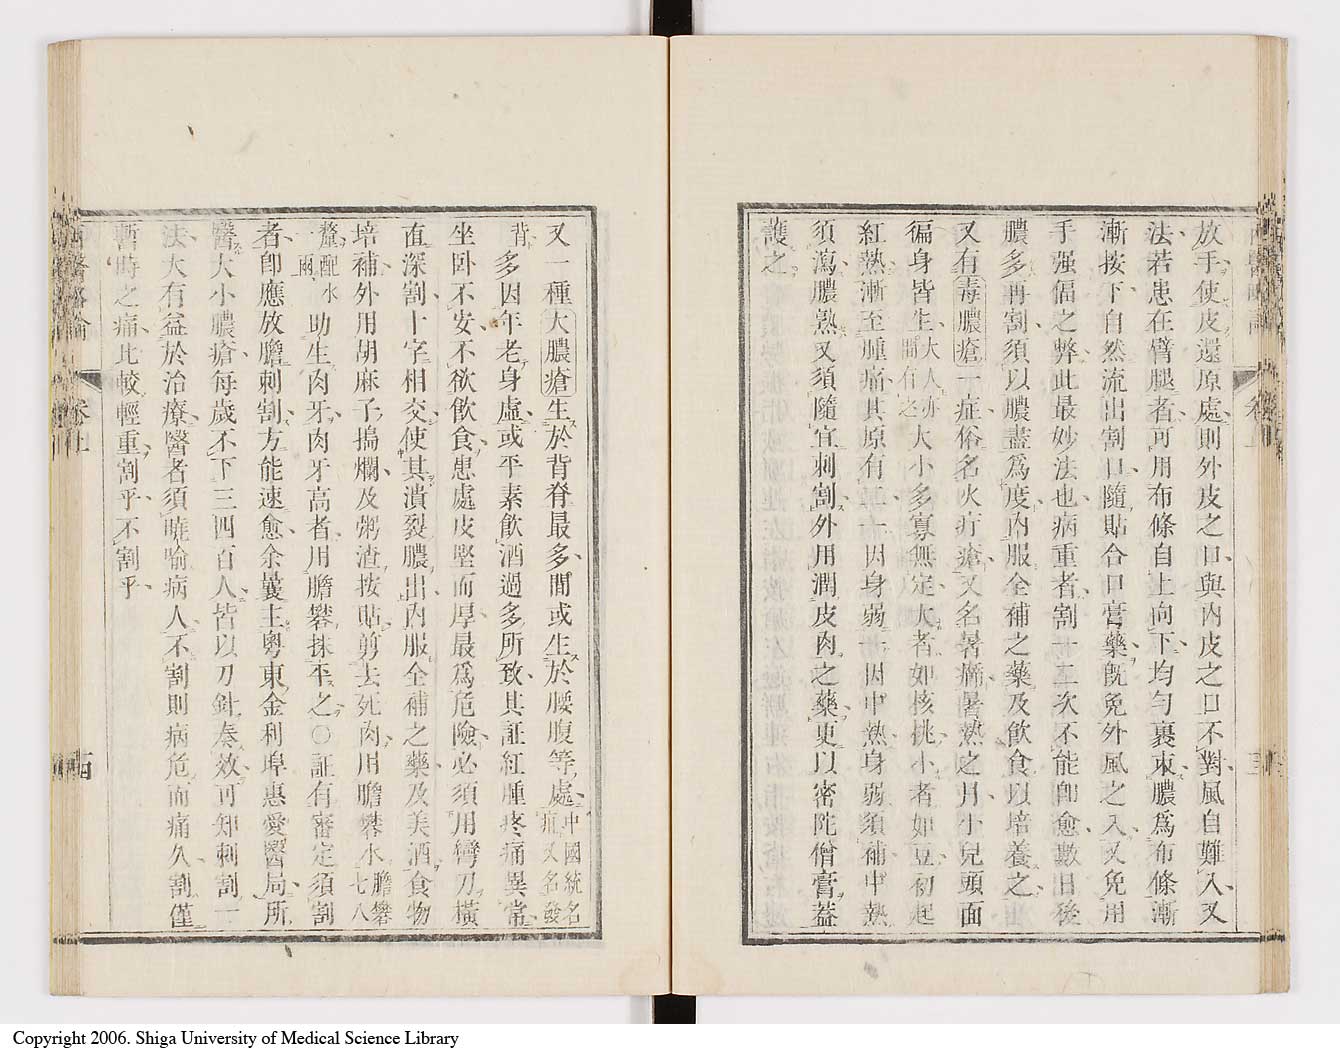 放手使皮還原處則外皮之口與內皮之口不對風自難入又
法若患在臂腿者可用布條自上向下均勻裹束膿爲布條漸
漸按下自然流出割口隨貼合口膏藥既免外風之入又免用
手强偪之弊此最妙法也病重者割一二次不能卽愈數日後
膿多再割須以膿盡爲度內服全補之藥及飮食以培養之
又有毒膿瘡一症俗名火疔瘡又名暑癤暑熱之月小兒頭面
徧身皆生大人亦間有之大小多寡無定大者如核桃小者如豆初起
紅熱漸至腫痛其原有二一因身弱一因中熱身弱須補中熱
須瀉膿熟又須隨宜刺割外用潤皮肉之藥更以密陀僧膏蓋
護之
又一種大膿瘡生於背脊最多間或生於腰腹等處中國統名疽又名發
背多因年老身虛或平素飮酒過多所致其証紅腫疼痛異常
坐卧不安不欲飮食患處皮堅而厚最爲危險必須用彎刀橫
直深割十字相交使其潰裂膿出內服全補之藥及美酒食物
培補外用胡麻子搗爛及粥渣按貼剪去死肉用膽礬水膽礬七八
釐配水一兩助生肉牙肉牙高者用膽礬抹平之〇証有審定須割
者卽應放膽刺割方能速愈余曩主粵東金利埠惠愛醫局所
醫大小膿瘡每歲不下三四百人皆以刀針奏效可知刺割一
法大有益於治療醫者須曉喻病人不割則病危而痛久割僅
暫時之痛比較輕重割乎不割乎
西醫略論
卷上
Copyright 2006. Shiga University of Medical Science Library